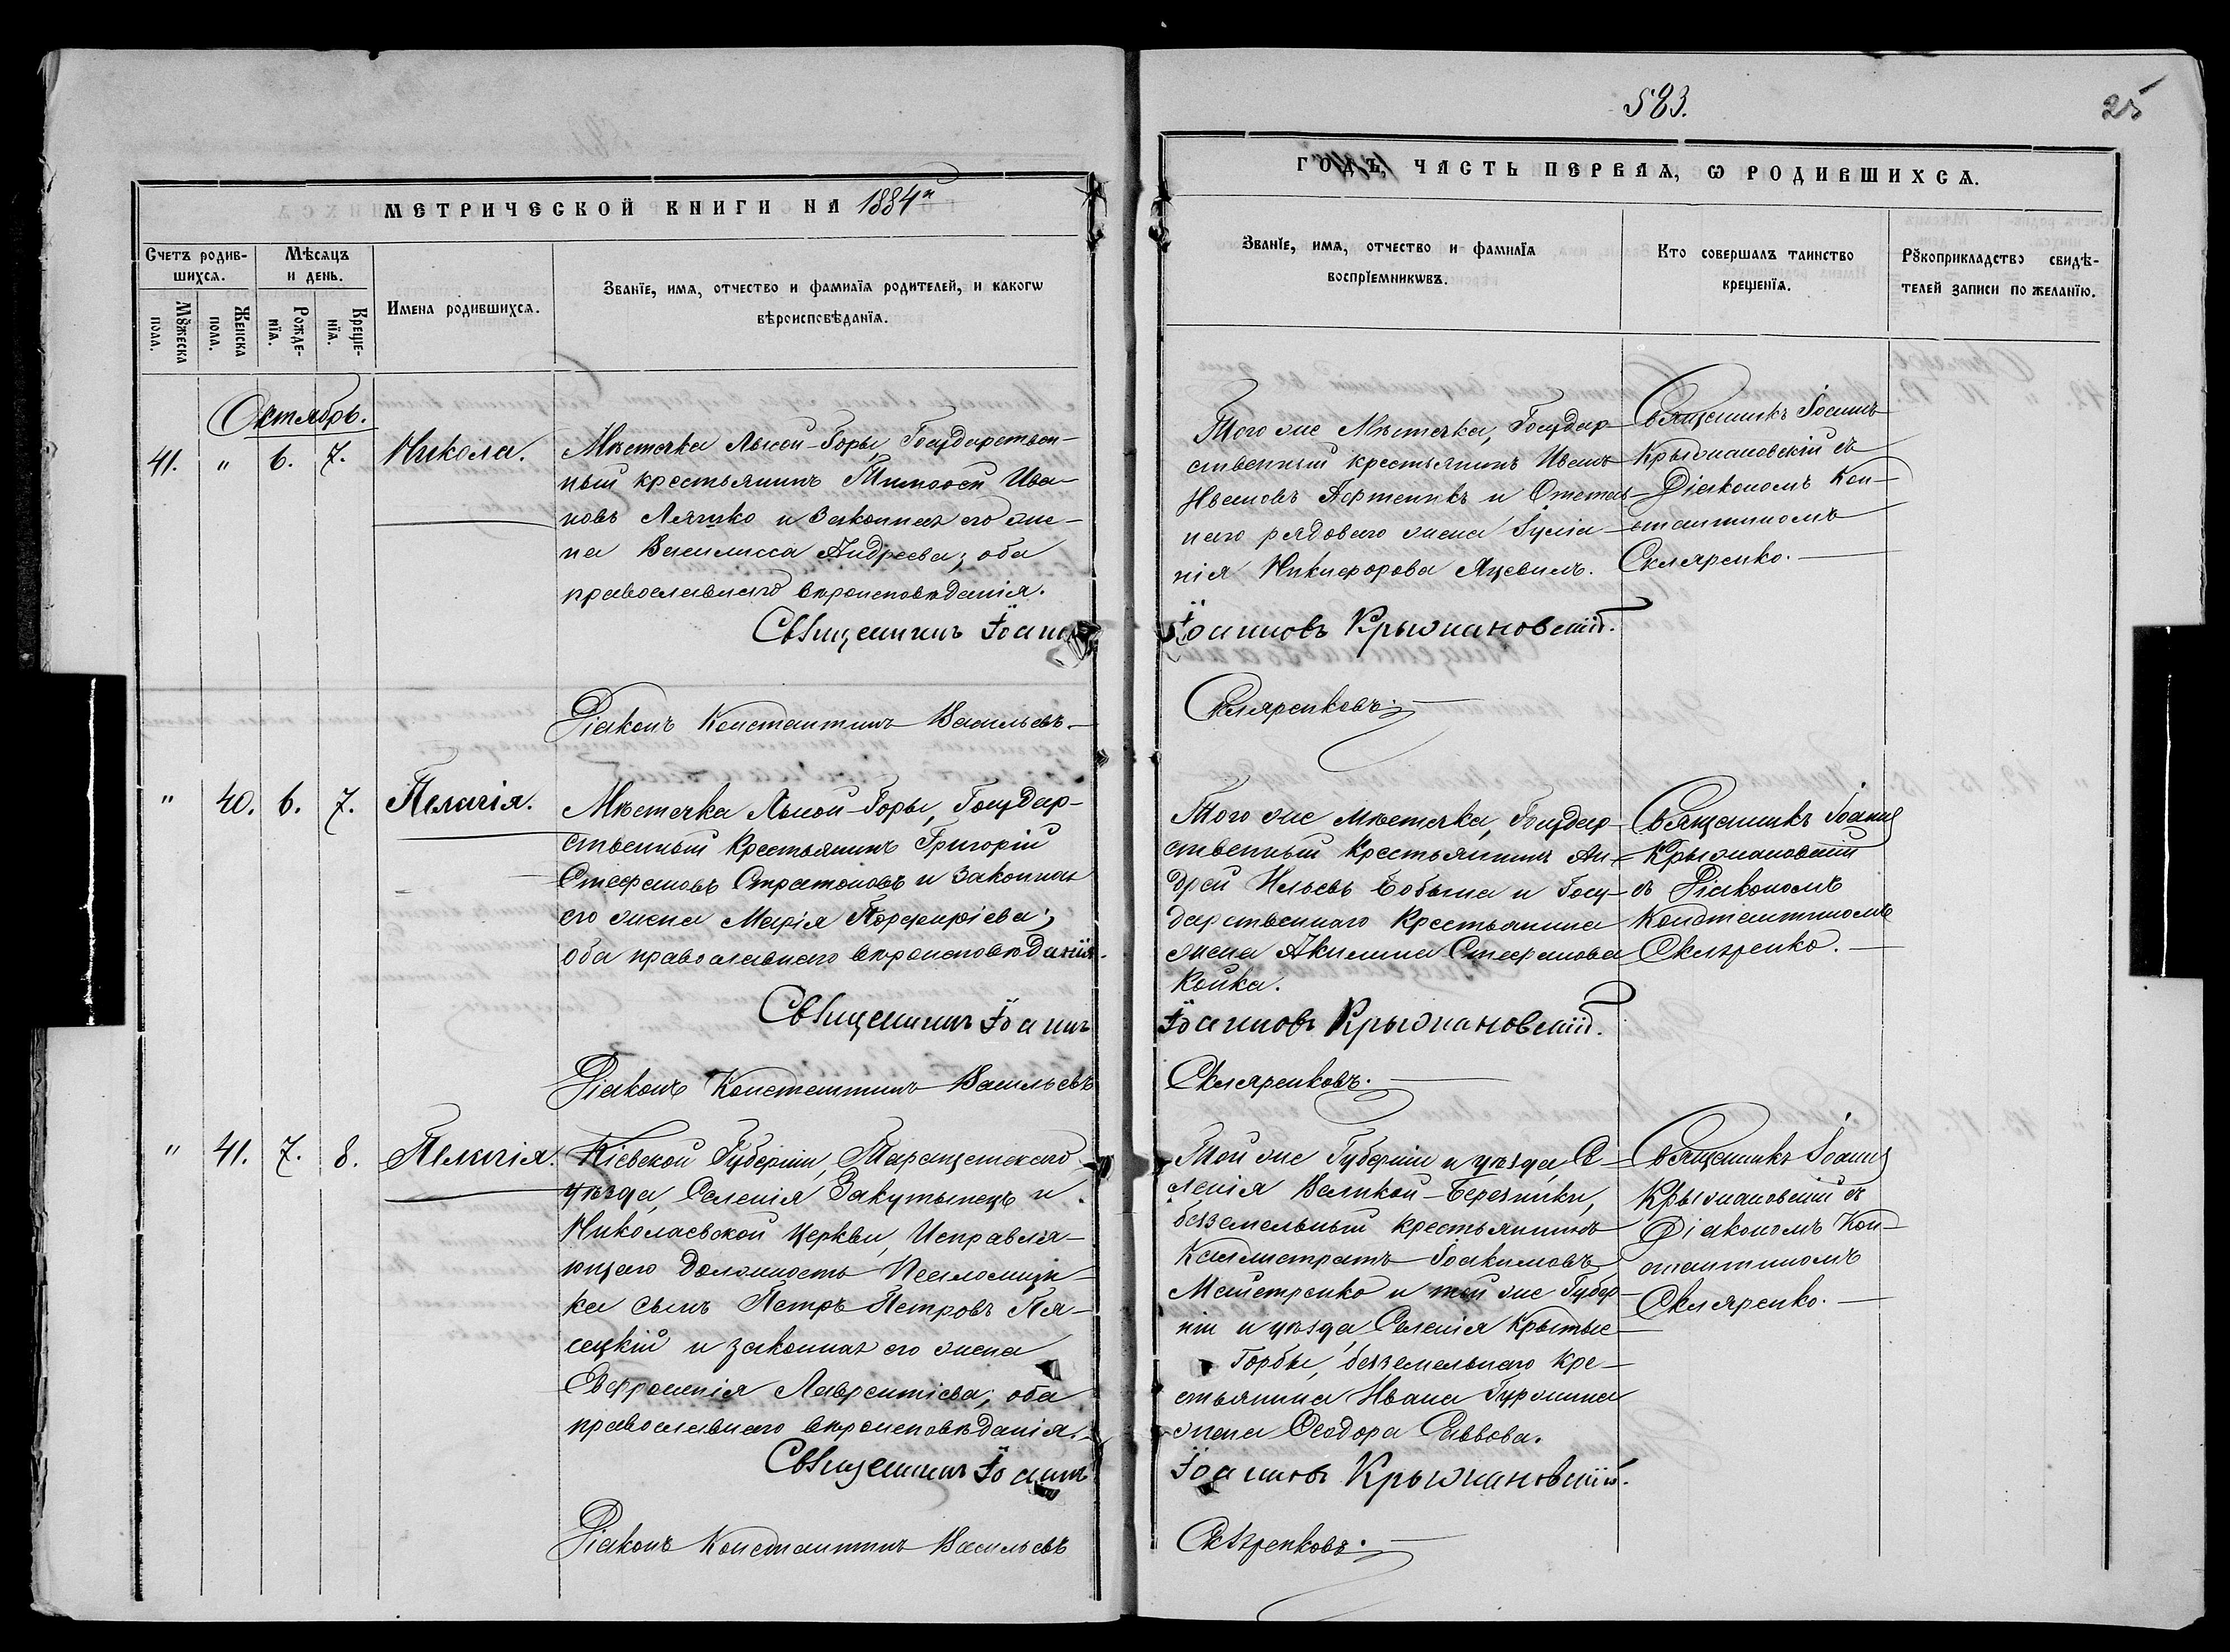 583.
25
МЕТРИЧЕСКОЙ КНИГИ НА 1884й
ГОДЪ, ЧАСТЬ ПЕРВАЯ, Ѡ РОДИВШИХСѦ.
Счетъ родив-
шихсѧ.
Мѣсяцъ
и день.
Мꙋжеска
пола.
Женска
пола.
Рожде-
нїѧ.
Креще-
нїѧ.
Имена родившихсѧ.
Званїе, имѧ, отчество и фамилїѧ родителей, и какогѡ
вѣроисповѣданїѧ.
Званїе, имѧ, отчество и фамилїѧ
воспрїемникѡвъ.
Кто совершалъ таинство
крещенїѧ.
Рꙋкоприкладство свидѣ-
телей записи по желанїю.
Октябрь.
41. " 6. 7. Никола.
Мѣстечка Лысой-Горы, Государствен-
ный крестьянинъ Тимоѳей Ива-
новъ Ляшко и Законная его же-
на Василисса Андреева; оба
православнаго вѣроисповѣданія.
Священникъ Іоаннъ
Діаконъ Константинъ Васильевъ
Того же Мѣстечка, Государ-
ственный крестьянинъ Иванъ
Ивановъ и Отстав-
наго рядоваго жена Іуліа-
нія Никифорова Яцевилъ.
Іоанновъ Крыжановскій.
Скляренковъ.
Священникъ Іоаннъ
Крыжановскій съ
Діакономъ Кон-
стантиномъ
Скляренко.
" 40. 6. 7. Пелагія.
Мѣстечка Лысой-Горы, Государ-
ственный Крестьянинъ Григорій
Стефановъ Стратоновъ и Законная
его жена Марія Порфиріева;
оба православнаго вѣроисповѣданія.
Священникъ Іоаннъ
Діаконъ Константинъ Васильевъ
Того же мѣстечка, Государ-
ственный Крестьянинъ Ан-
дрей Ильевъ Бобына и Госу-
дарственнаго Крестьянина
жена Акилина Стефанова
Койка.
Іоанновъ Крыжановскій.
Скляренковъ.
Священникъ Іоаннъ
Крыжановскій
съ Діакономъ
Константиномъ
Скляренко.
" 41. 7. 8. Пелагія.
Кіевской Губерніи, Таращанскаго
уѣзда, Селенія Закутынецъ и
Николаевской Церкви, Исправля-
ющаго Должность Псаломщи-
ка сынъ Петръ Петровъ Пя-
сецкій и законная его жена
Евфросинія Лаврентіева; оба
православнаго вѣроисповѣданія.
Священникъ Іоаннъ
Діаконъ Константинъ Васильевъ
Той же Губерніи и уѣзда, Се-
ленія Великой-Березянки,
безземельный крестьянинъ
Каллистратъ Іоакимовъ
Майстренко и той же Губер-
ніи и уѣзда, Селенія Крытые-
Горбы, безземельнаго кре-
стьянина Ивана Гуржина
жена Ѳеодора Саввова.
Іоанновъ Крыжановскій.
Скляренковъ.
Священникъ Іоаннъ
Крыжановскій съ
Діакономъ Кон-
стантиномъ
Скляренко.